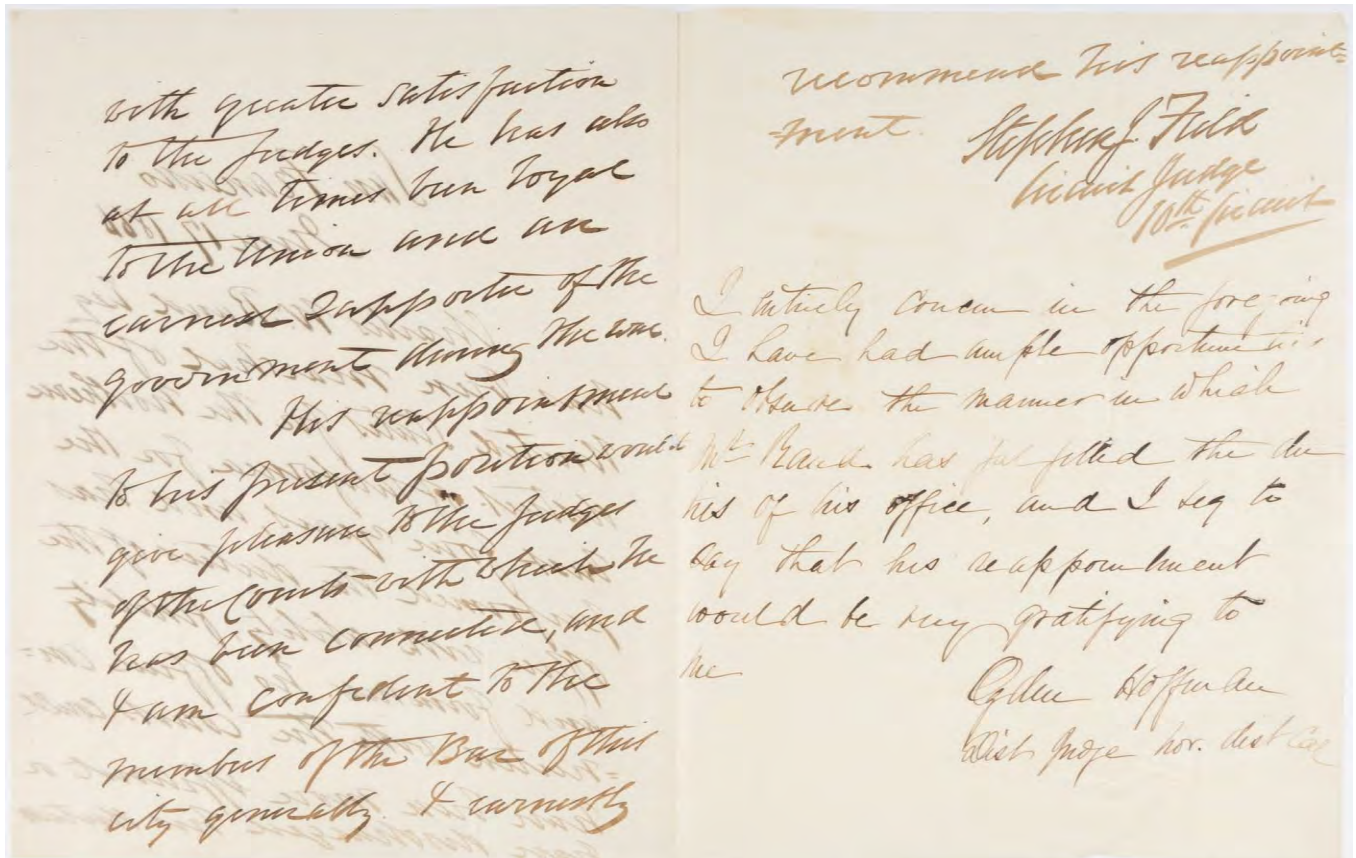 with greater satisfaction
to the Judges. He has also
at all times been loyal
to the Union and an
earnest supporter of the
government during the war.
His reappointment
to his present position would
give pleasure to the Judges
of the Courts with which he
has been connected, and
I am confident to the
members of the Bar of this
city generally. I earnestly
recommend his reappoint=
=ment.
Stephen J. Field
Circuit Judge
10th Circuit
I entirely concur in the foregoing
I have had ample opportunities
to observe the manner in which
Mr Rand has fulfilled the du
ties of his office, and I beg to
say that his reappointment
would be very gratifying to
me
Ogden Hoffman
Dist Judge Nor. dist Cal